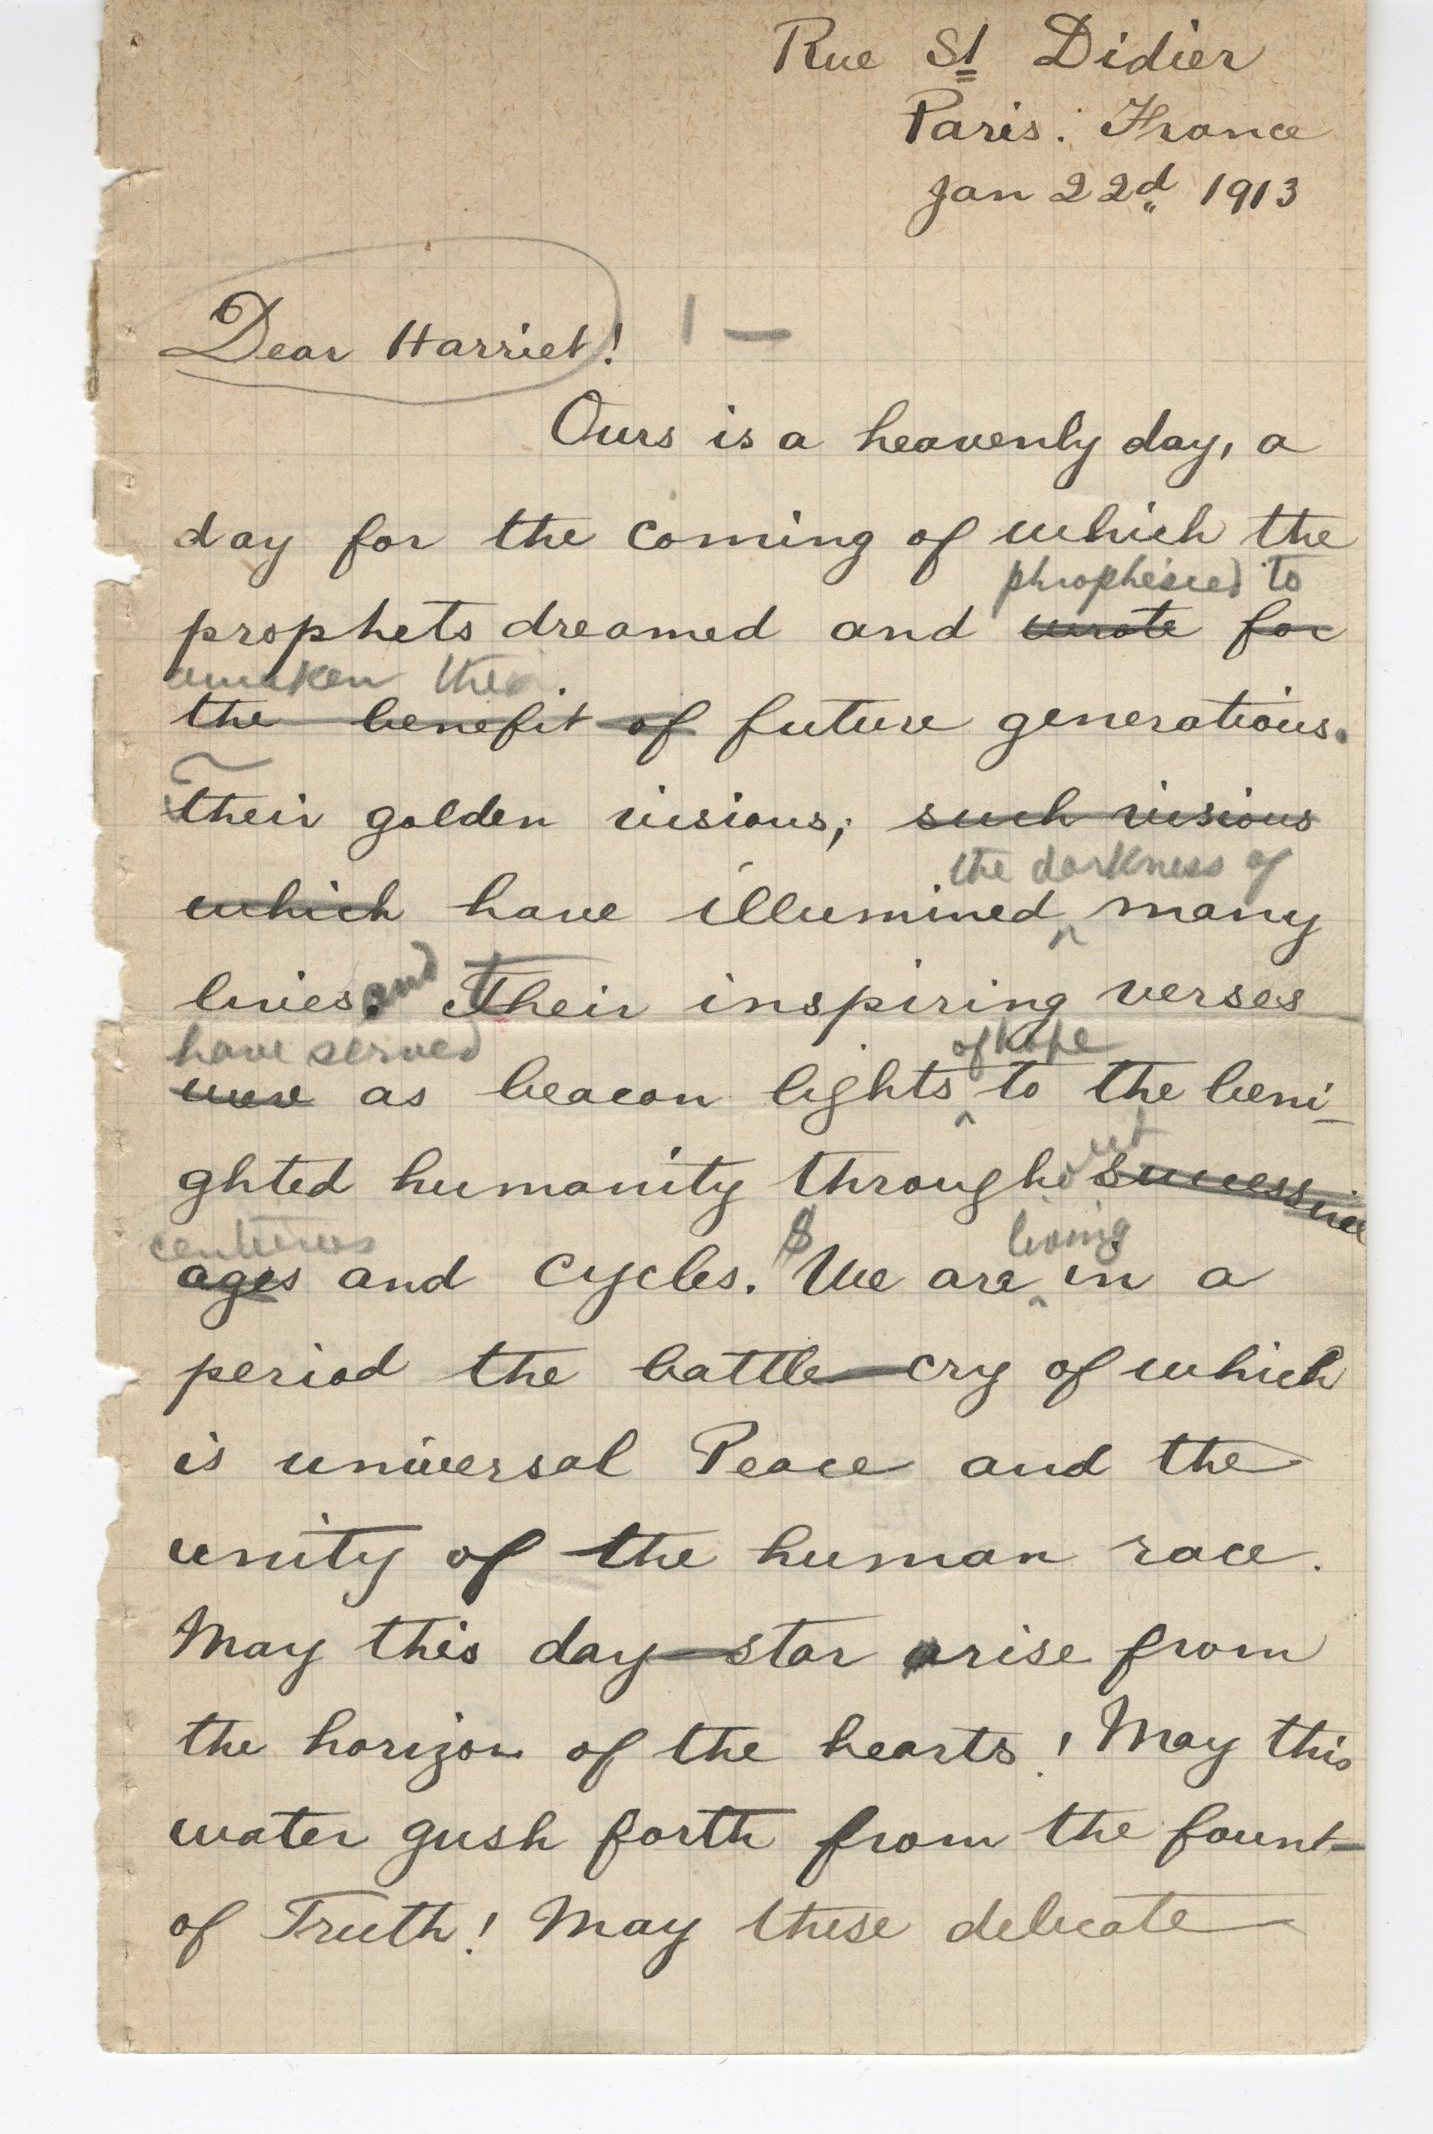 Rue St Didier
Paris. France
Jan 22d 1913
Dear Harriet! 1 —
Ours is a heavenly day, a
day for the coming of which the
phrophesied to
prophets dreamed and wrote for
awaken the
the benefit of future generations.
Their golden visions; such visions
the darkness of
which have illumined ^ many
lives. and Their inspiring verses
have served of hope
were as beacon lights ^ to the beni-
ghted humanity through out successive
centuries living
ages and cycles. We are ^ in a
period the battle-cry of which
is universal Peace and the
unity of the human race.
May this day-star arise from
the horizon of the hearts! May this
water gush forth from the fount-
of Truth! May these delicate